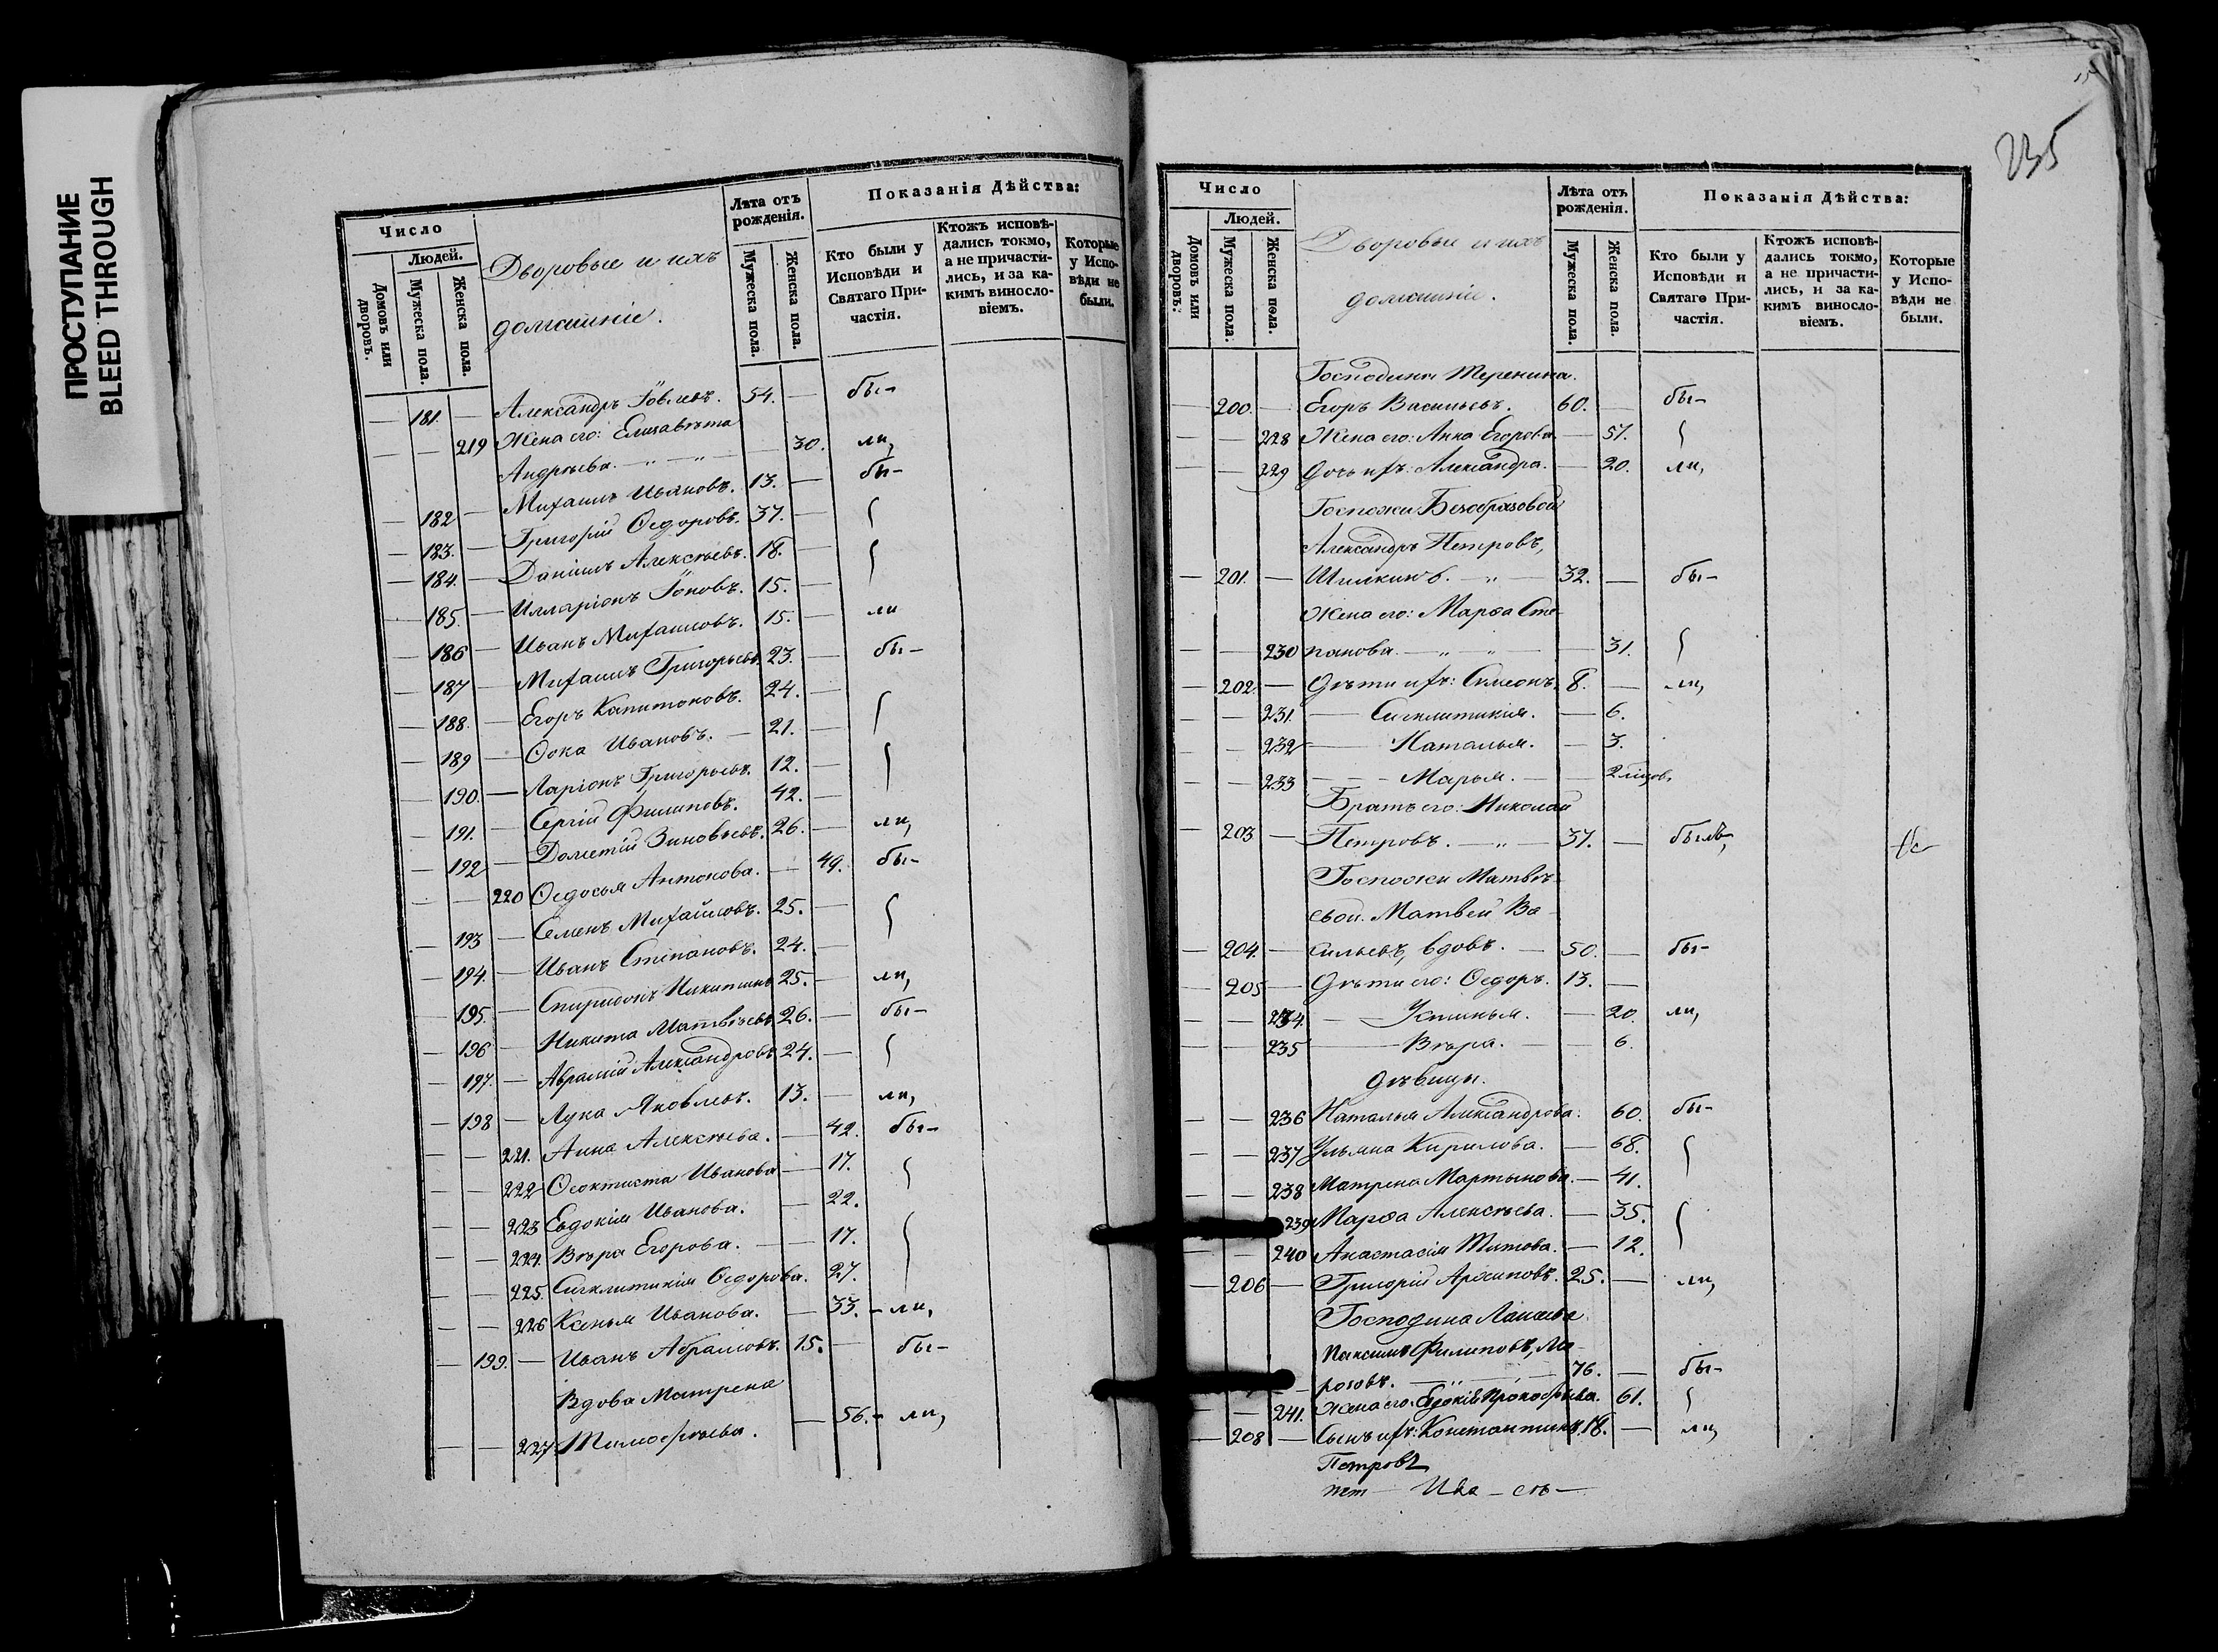 ПРОСТУПАНИЕ
BLEED THROUGH
Число
Людей.
Домовъ или дворовъ.
Мужеска пола.
Женска пола.
Дворовые и ихъ
домашніе.
Лѣта отъ рожденія.
Мужеска пола.
Женска пола.
Показанія Дѣйства:
Кто были у Исповѣди и Святаго Причастія.
Ктожъ исповѣдались токмо, а не причастились, и за какимъ винословіемъ.
Которые у Исповѣди не были.
— 181. — Александръ Іовлевъ. 54. — бы-
— — 219 Жена его: Елизавѣта
Андрѣева. — „ — „ — — 30. ли,
— 182 — Михаилъ Ивановъ. 13. — бы-
— 183. — Григорій Ѳедоровъ. 37. —
— 184. — Даніилъ Алексѣевъ. 18. —
— 185. — Илларіонъ Іоновъ. 15. —
— 186 — Иванъ Михаиловъ. 15. — ли
— 187 — Михаилъ Григорьевъ. 23. — бы-
— 188. — Егоръ Капитоновъ. 24. —
— 189 — Ѳока Ивановъ. — 21. —
— 190. — Ларіонъ Григорьевъ. 12. —
— 191. — Сергій Филиповъ. 42. —
— 192 — Дометій Зиновьевъ. 26. — ли,
— — 220 Ѳедосья Антонова. — 49. бы-
— 193 — Семенъ Михайловъ. 25. —
— 194. — Иванъ Степановъ. 24. —
— 195. — Спиридонъ Никитинъ 25. — ли,
— 196 — Никита Матвѣевъ 26. — бы-
— 197. — Аврамій Александровъ 24. —
— 198 — Лука Яковлевъ. 13. — ли,
— — 221. Анна Алексѣева. — 42. бы-
— — 222 Ѳеоктиста Иванова — 17.
— — 223 Евдокія Иванова. — 22.
— — 224. Вѣра Егорова. — 17.
— — 225. Сигклитикія Ѳедорова. 27.
— — 226 Ксенья Иванова. — 33. - ли,
— 199. — Иванъ Абрамовъ. 15. — бы-
Вдова Матрена
— — 227 Тимофѣева. — 56. - ли,
235
Число
Людей.
Домовъ или дворовъ.
Мужеска пола.
Женска пола.
Дворовые и ихъ
домашніе.
Лѣта отъ рожденія.
Мужеска пола.
Женска пола.
Показанія Дѣйства:
Кто были у Исповѣди и Святаго Причастія.
Ктожъ исповѣдались токмо, а не причастились, и за какимъ винословіемъ.
Которые у Исповѣди не были.
Господина Теренина.
— 200. — Егоръ Васильевъ. 60. — бы-
— — 228 Жена его: Анна Егорова. — 57.
— — 229 Дочь ихъ: Александра. — 20. ли,
Госпожи Безобразовой
Александръ Петровъ,
— 201. — Шишкинъ. — „ — 32. — бы-
Жена его: Марѳа Сте-
— — 230 панова. — „ — „ — — 31.
— 202. — Дѣти ихъ: Симеонъ. 8. — ли,
— — 231. — Сигклитикія. — 6.
— — 232 — Наталья. — 3.
— — 233 — Марья. — 2 мѣсцов.
Братъ его: Николай
— 203 — Петровъ. — „ — 37. — былъ,
Госпожи Матвѣ-
евой. Матвей Ва-
— 204. — сильевъ, вдовъ. — 50. — бы-
— 205 — Дѣти его: Ѳедоръ. 13. —
— — 234. — Устинья. — 20. ли,
— — 235 — Вѣра. — 6.
Дѣвицы.
— — 236 Наталья Александрова. 60. бы-
— — 237 Ульяна Кирилова. — 68.
— — 238 Матрена Мартынова. — 41.
239 Марѳа Алексѣева. — 35.
— 240 Анастасія Титова. — 12.
— 206 — Григорій Архиповъ. 25. — ли,
Господина
Максимъ Филиповъ, Ма-
розовъ. — 76. — бы-
— — 241. Жена его: Евдокія Прокофьева. 61.
— 208 — Сынъ ихъ: Константинъ. 18. — ли,
Петровъ